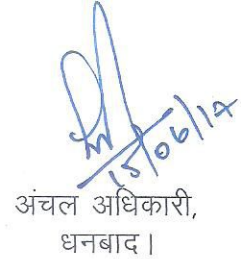 15/06/17
अंचल अधिकारी,
धनबाद।